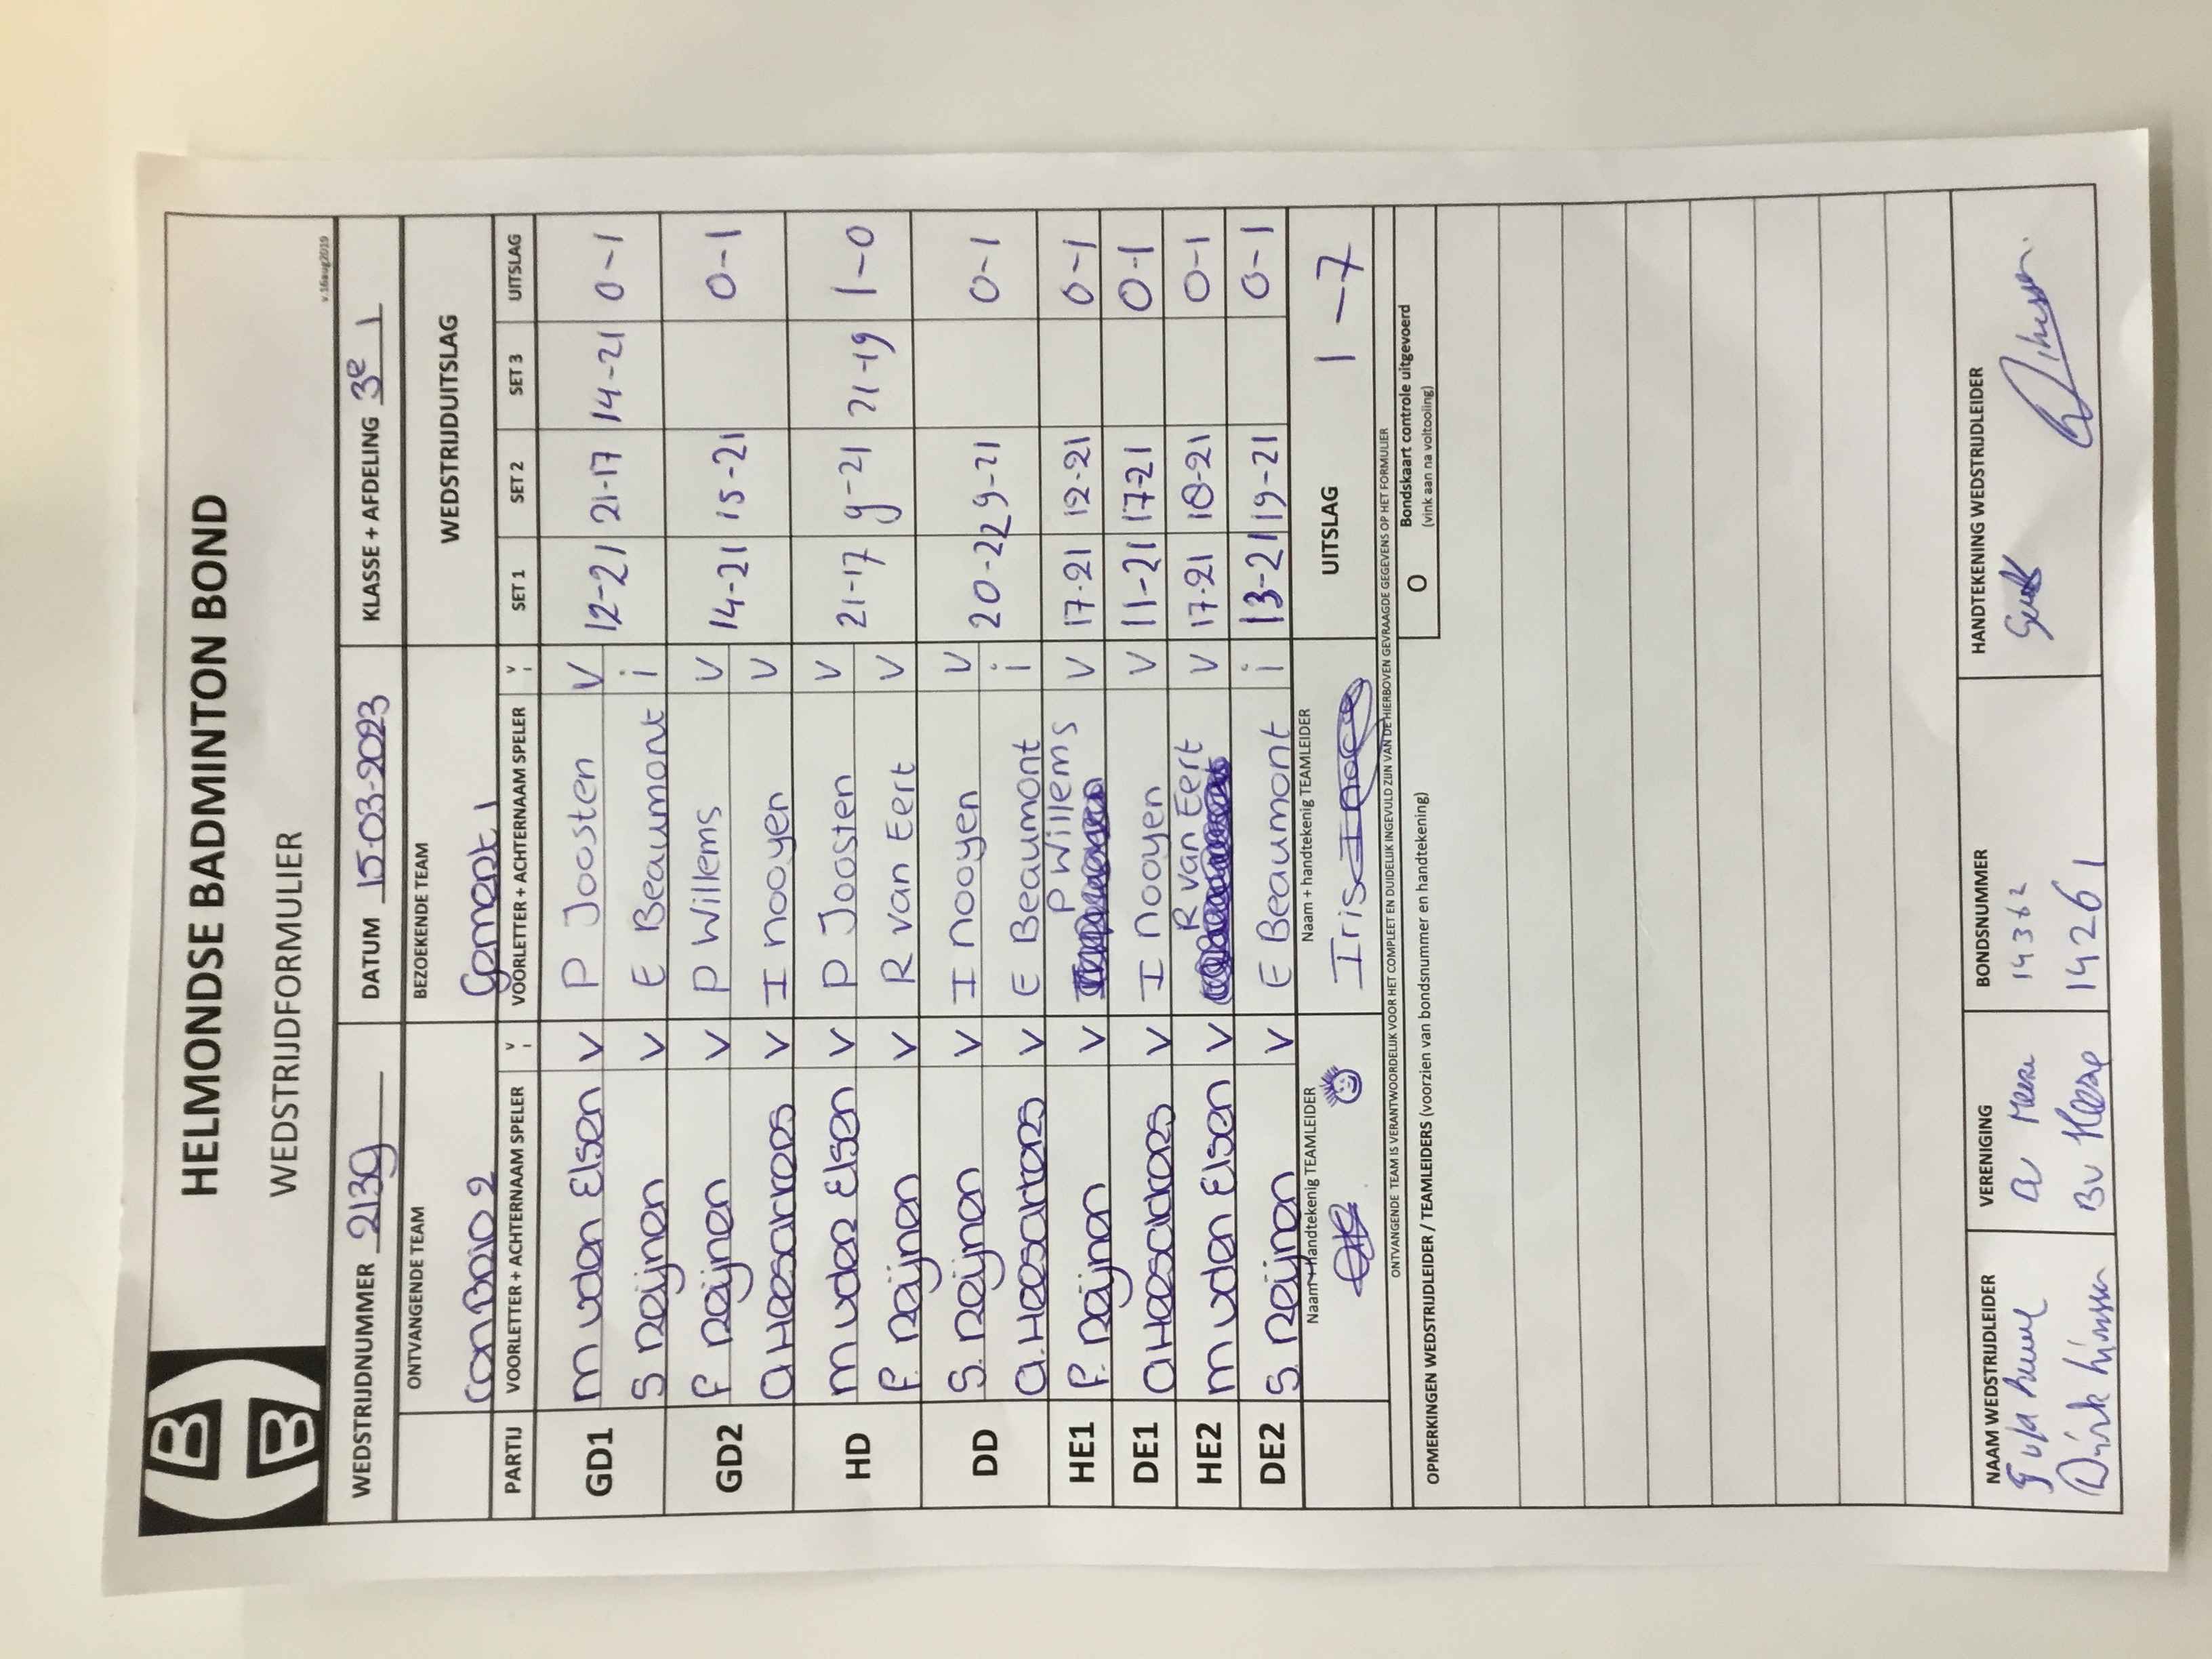 HELMONDSE BADMINTON BOND
WEDSTRIJDFORMULIER
v.16aug2019
WEDSTRIJDNUMMER 2139 DATUM 15-03-2023 KLASSE + AFDELING 3e 1
ONTVANGENDE TEAM BEZOEKENDE TEAM WEDSTRIJDUITSLAG
Con Brio 2 Gemert 1
PARTIJ VOORLETTER + ACHTERNAAM SPELER V i VOORLETTER + ACHTERNAAM SPELER V i SET 1 SET 2 SET 3 UITSLAG
GD1 M vden Elsen V P Joosten V 12-21 21-17 14-21 0-1
S Reijnen V E Beaumont i
GD2 F Reijnen V P Willems V 14-21 15-21 0-1
A Heesakkers V I Nooyen V
HD M vden Elsen V P Joosten V 21-17 9-21 21-19 1-0
F. Reijnen V R van Eert V
DD S. Reijnen V I Nooyen V 20-22 9-21 0-1
A. Heesakkers V E Beaumont i
HE1 F. Reijnen V P Willems V 17-21 12-21 0-1
DE1 A Heesakkers V I Nooyen V 11-21 17-21 0-1
HE2 M vden Elsen V R van Eert V 17-21 18-21 0-1
DE2 S. Reijnen V E Beaumont i 13-21 19-21 0-1
Naam + Handtekenig TEAMLEIDER Naam + handtekenig TEAMLEIDER UITSLAG 1-7
Iris
ONTVANGENDE TEAM IS VERANTWOORDELIJK VOOR HET COMPLEET EN DUIDELIJK INGEVULD ZIJN VAN DE HIERBOVEN GEVRAAGDE GEGEVENS OP HET FORMULIER
OPMERKINGEN WEDSTRIJDLEIDER / TEAMLEIDERS (voorzien van bondsnummer en handtekening) O Bondskaart controle uitgevoerd
(vink aan na voltooiing)
NAAM WEDSTRIJDLEIDER VERENIGING BONDSNUMMER HANDTEKENING WEDSTRIJDLEIDER
14362
Dirk BV Heeze 14261